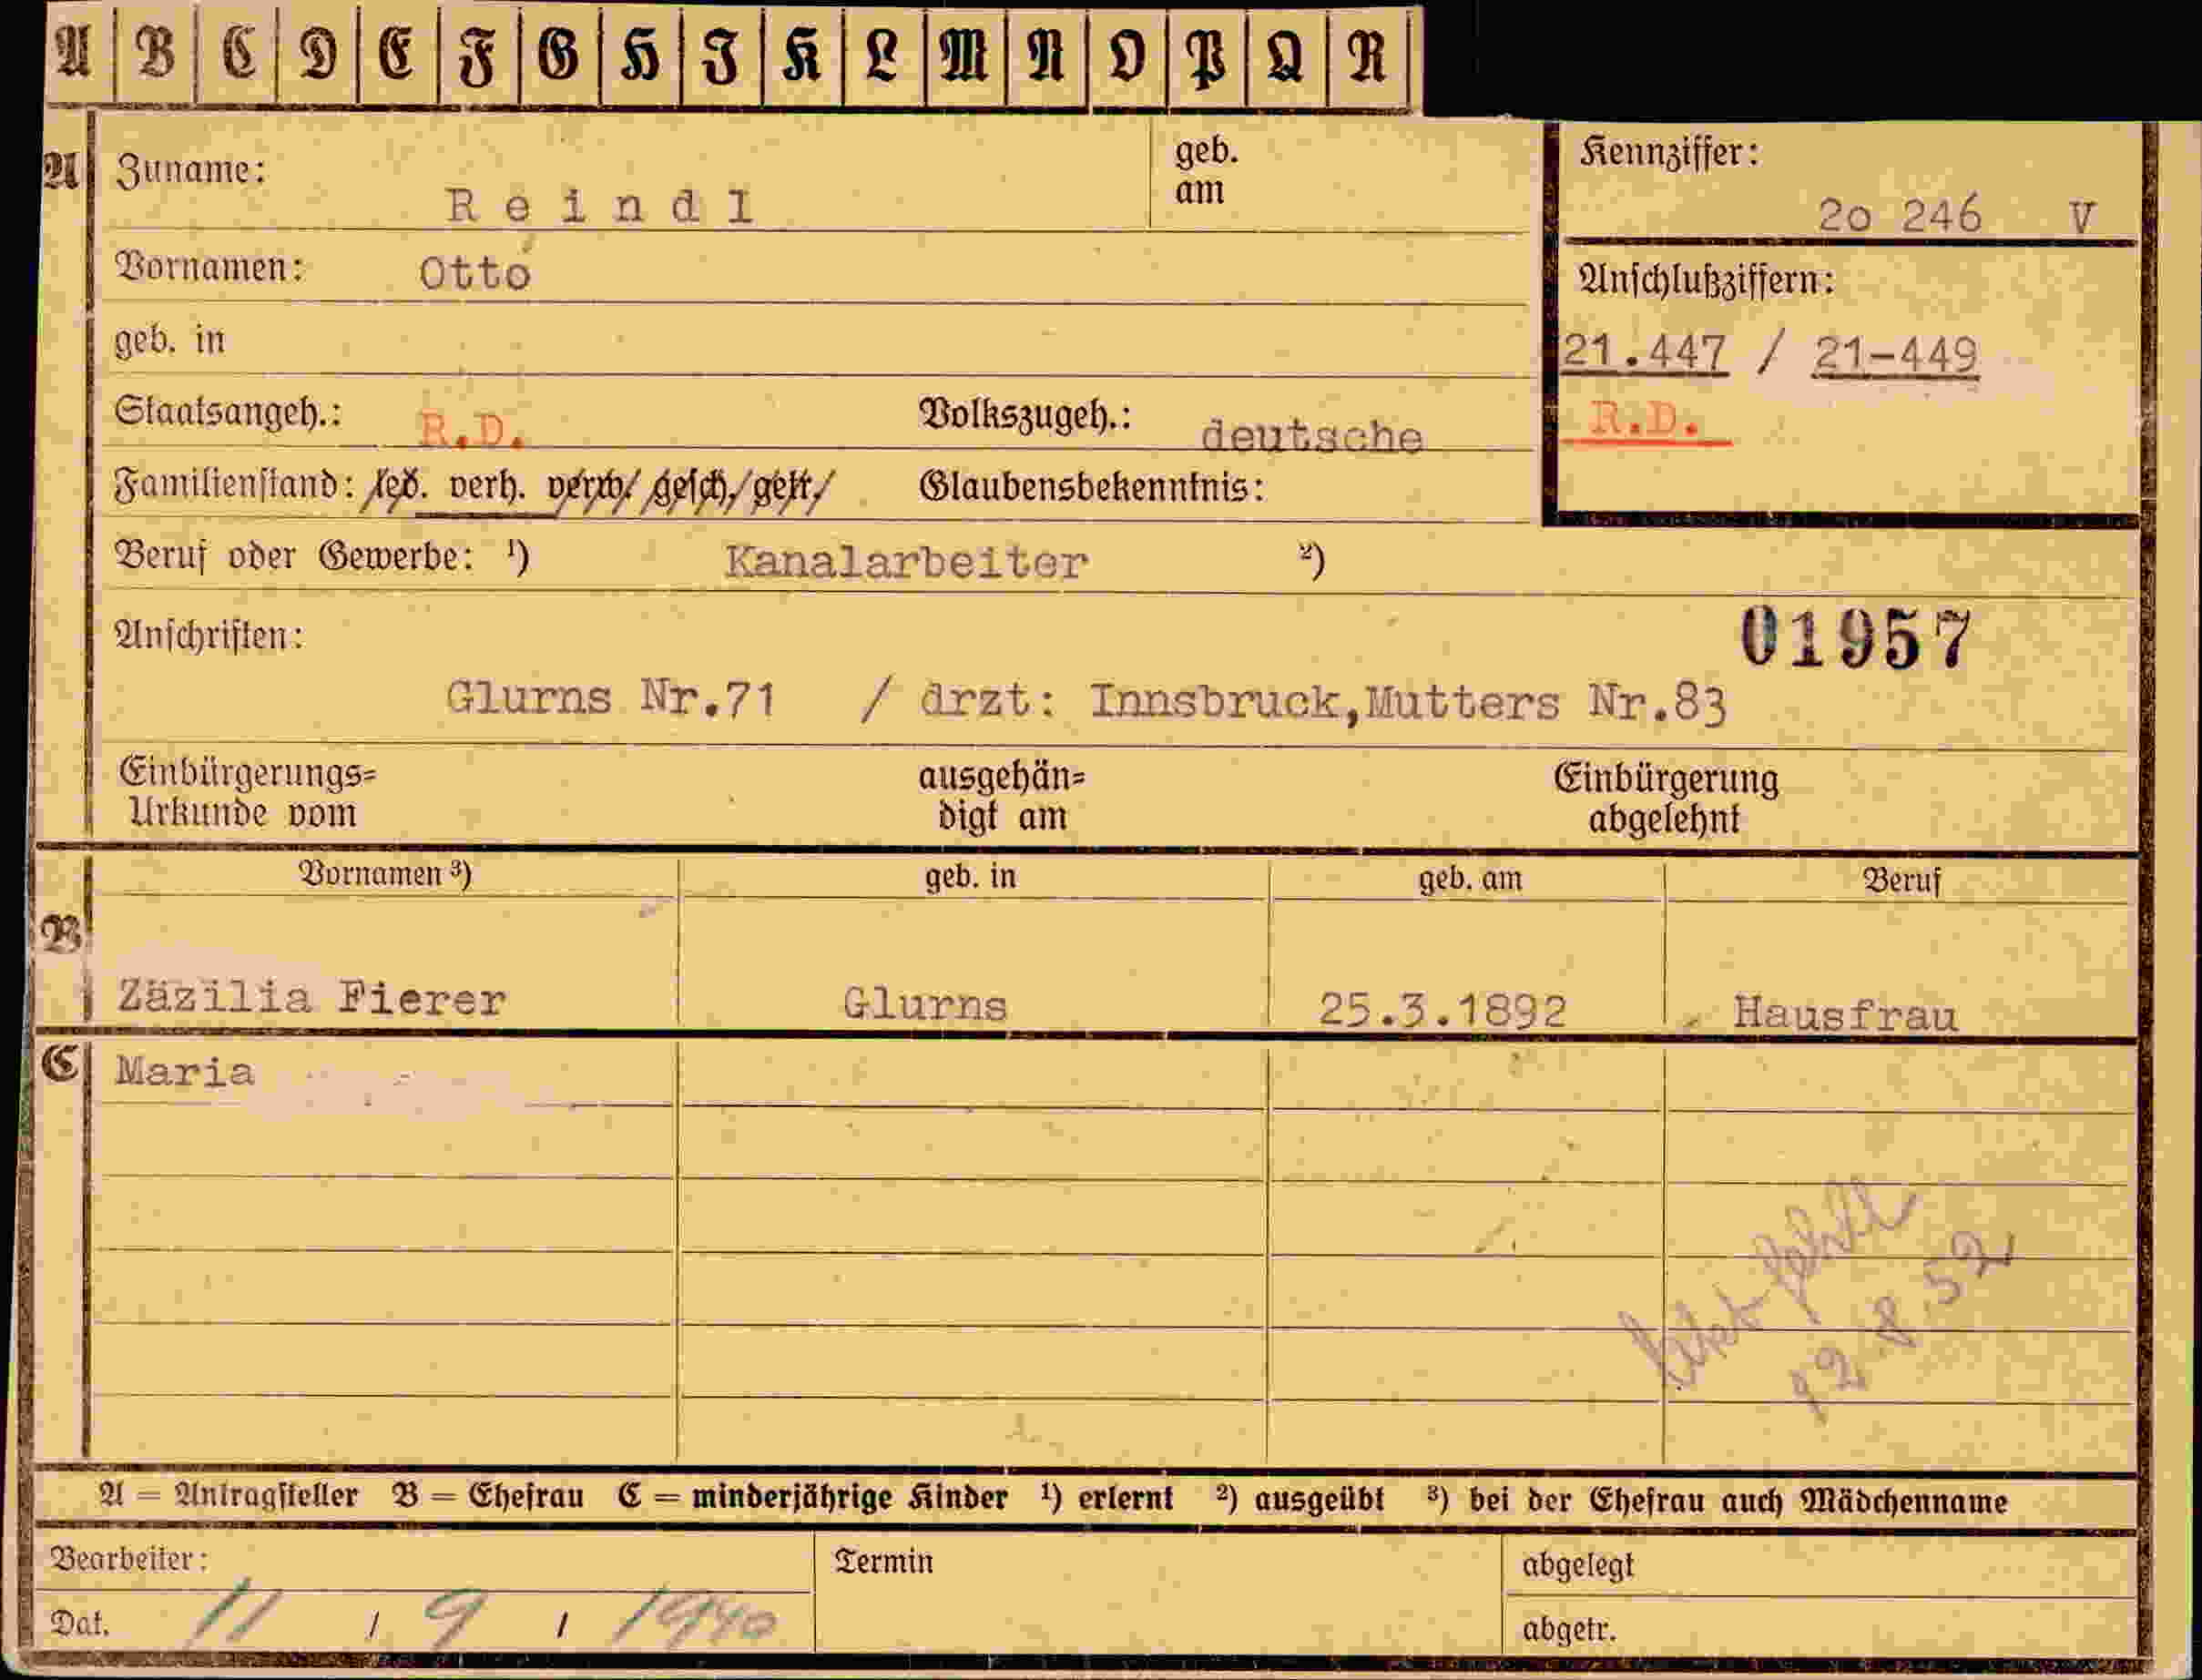 A B C D E F G H I K L M N O P Q R
A Zuname: Reindl geb. am
Kennziffer: 2o 246 V
Vornamen: Otto
Anschlußziffern:
geb. in
21.447 / 21-449
Staatsangeh.: R.D. Volkszugeh.: deutsche
R.D.
Familienstand: led. verh. verw. gesch. getr. Glaubensbekenntnis:
Beruf oder Gewerbe: ¹) Kanalarbeiter ²)
Anschriften: 01957
Glurns Nr.71 / drzt: Innsbruck,Mutters Nr.83
Einbürgerungs= ausgehän= Einbürgerung
Urkunde vom digt am abgelehnt
Vornamen ³) geb. in geb. am Beruf
B
Zäzilia Fierer Glurns 25.3.1892 Hausfrau
C Maria
Akt fehlt
12.8.52
A = Antragsteller B = Ehefrau C = minderjährige Kinder ¹) erlernt ²) ausgeübt ³) bei der Ehefrau auch Mädchenname
Bearbeiter: Termin abgelegt
Dat. 11 / 9 / 1940 abgetr.